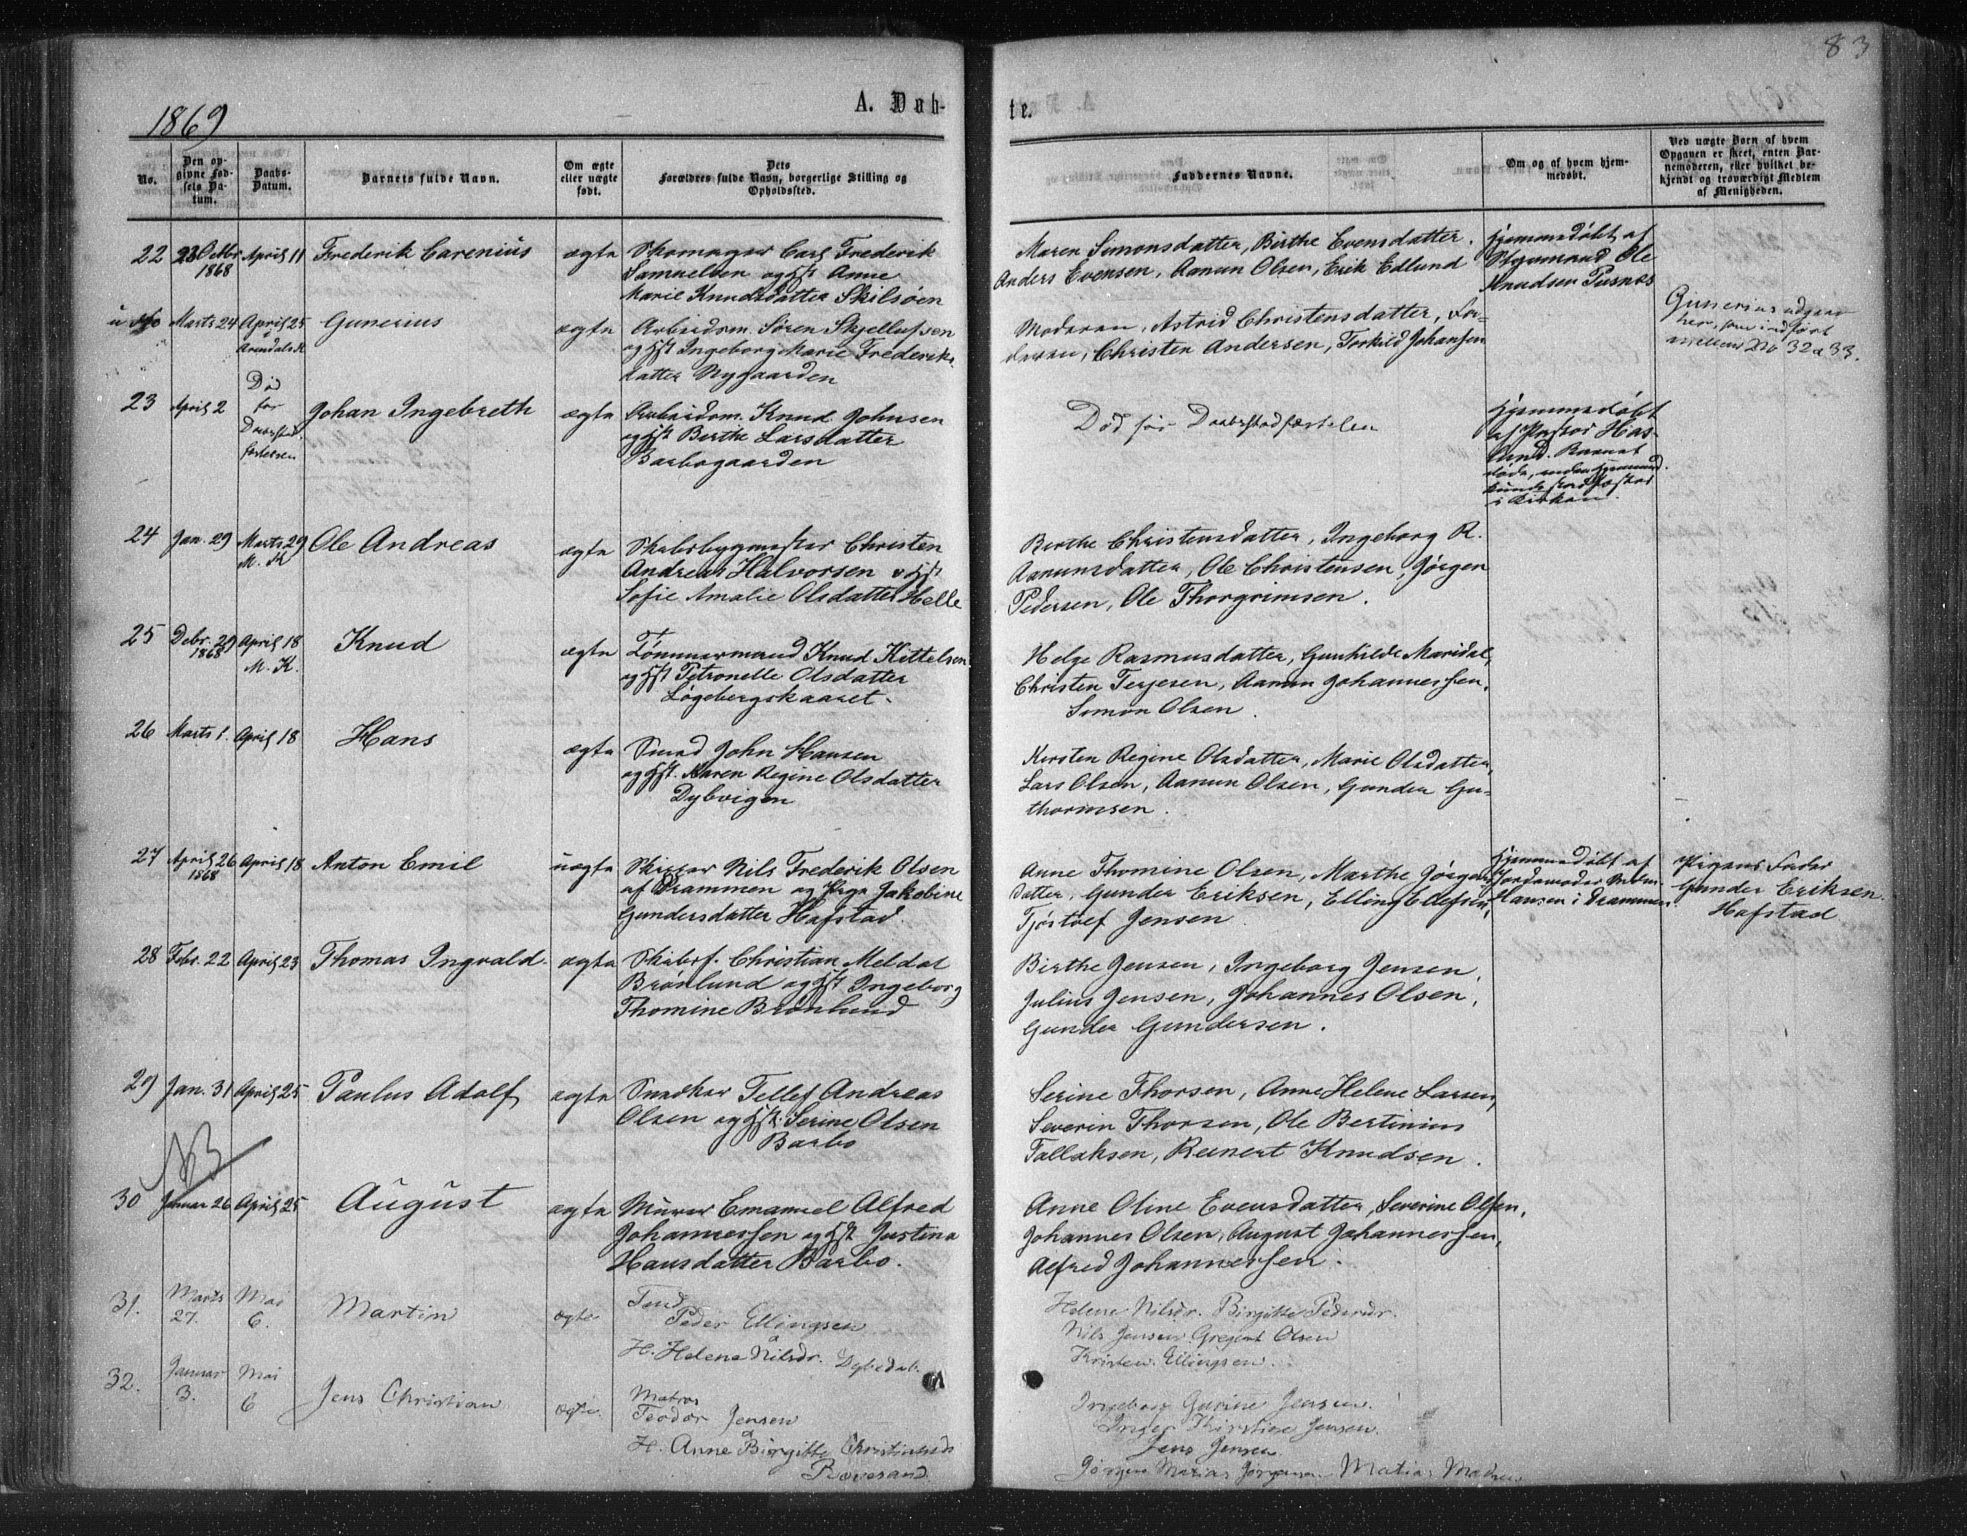 83
1869
A. Døb-
te.
No.
Den opgivne Fødsels Datum.
Daabs-Datum.
Barnets fulde Navn.
Om ægte eller uægte født.
Dets Forældres fulde Navn, borgerlige Stilling og Opholdssted.
Faddernes Navne.
Om og af hvem hjemmedøbt.
Ved uægte Børn af hvem Opgaven er skeet, enten Barnemoderen, eller hvilket bekjendt og troværdigt Medlem af Menigheden.
22
1868
April 11
Frederik Carenius
ægte
Skomager Carl Frederik
Samuelsen og Hst Anne
Marie Knudsdatter Skilsøen
Maren Simonsdatter, Birthe Evensdatter.
Anders Evensen, Aanun Olsen, Erik Edlund
Hjemmedøbt af
Ole
Knudsen Pusnes
Marts 24
April 25
Arendals K
Gunerius
ægte
Arbeidsm. Søren Skjellufsen
og Hst Ingeborg Marie Frederiks-
datter Nygaarden
Moderen, Astrid Christensdatter, Fa-
deren, Christen Andersen, Torkild Johansen
Gunerius udgaar
her, som indført
mellem No 32 a 33.
23
April 2
Død
før
Daabsstad-
fæstelsen
Johan Ingebreth
ægte
Arbeidsm. Knud Johnsen
og Hst Berthe Larsdatter
Barbogaarden
Død før Daabsstadfæstelsen
Hjemmedøbt
af Pastor Has-
lund. Barnet
døde, inden hjemmed.
kunde stadfæstes
i Kirken.
24
Jan. 29
Marts 29
M. K
Ole Andreas
ægte
Skibsbygmester Christen
Andreas Halvorsen og Hst
Sofie Amalie Olsdatter Helle
Berthe Christensdatter, Ingeborg R.
Aanunsdatter, Ole Christensen, Jørgen
Pedersen, Ole Thorgrimsen.
25
Debr. 29
1868
April 18
M. K.
Knud
ægte
Tømmermand Knud Kittelsen
og Hst Petronelle Olsdatter
Løgebergskaaret.
Helge Rasmusdatter, Gunhilde Mæridal,
Christen Terjesen, Aanun Johannessen,
Simon Olsen
26
Marts 1.
April 18
Hans
ægte
Smed John Hansen
og Hst. Karen Regine Olsdatter
Dybvigen
Kersten Regine Olsdatter, Marie Olsdatter,
Lars Olsen, Aanun Olsen, Gunder Gu-
thormsen.
27
April 26
1868
April 18
Anton Emil
uægte
Skipper Nils Frederik Olsen
af Drammen og Pige Jakobine
Gundersdatter Hafstad.
Anne Thomine Olsen, Marthe Jørgens-
datter, Gunder Eriksen, Elling Ellefsen,
Tjøstolf Jensen
Hjemmedøbt af
Jordemoder
Hansen i Drammen
Pigens Fader
Gunder Eriksen
Hafstad
28
Febr. 22
April 23
Thomas Ingvald
ægte
Skibsf. Christian Meldal
Brønlund og Hst Ingeborg
Thomine Brønlund
Birthe Jensen, Ingeborg Jensen,
Julius Jensen, Johannes Olsen,
Gunder Gundersen.
29
Jan. 31
April 25
Paulus Adolf
ægte
Snedker Tellef Andreas
Olsen og Hst. Serine Olsen
Barbo
Serine Thorsen, Anne Helene Larsen,
Severin Thorsen, Ole Bertinius
Tallaksen, Reinert Knudsen.
NB
30
Januar 26
April 25
August
ægte
Murer Emanuel Alfred
Johannessen og Hst Justina
Hansdatter Barbo.
Anne Oline Evensdatter, Severine Olsen,
Johannes Olsen, August Johannessen,
Alfred Johannessen.
31.
Marts
27.
Mai
6.
Martin
ægte
Peder Ellingsen
H. Helene Nilsdr. Dybedal.
Helene Nilsdr. Birgitte Pedersdr.
Nils Jensen Gregert Olsen
Kristen Ellingsen.
32.
Januar
3.
Mai
6
Jens Christian
ægte.
Matros
Teodor Jensen
H. Anne Birgitte Christiansdr
Rævesand
Ingeborg Gurine Jensen.
Inger Kirstine Jensen.
Jens Jensen.
Jørgen Matias Jørgensen Matias